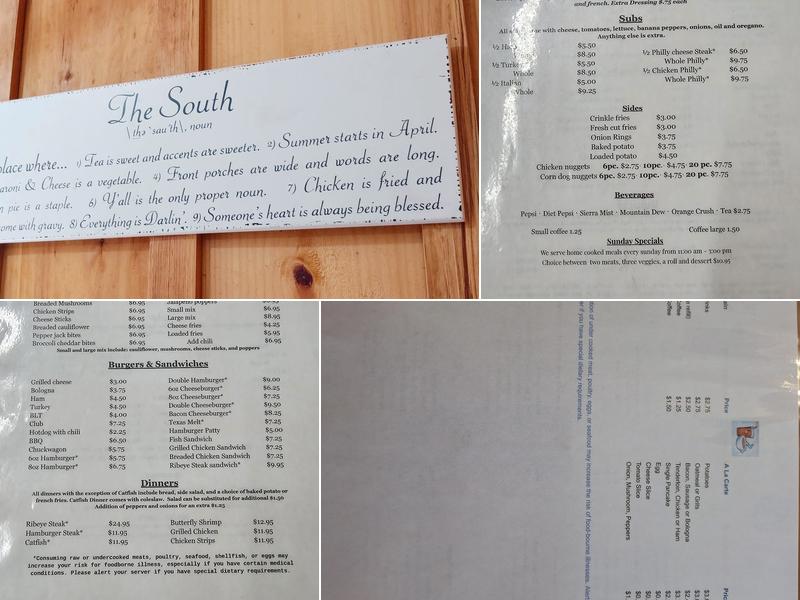 The South
\ thə ˈsau̇ th\ , noun
place where... 1) Tea is sweet and accents are sweeter. 2) Summer starts in April.
& Cheese is a vegetable. 4) Front porches are wide and words are long.
pie is a staple. 6) Y'all is the only proper noun. 7) Chicken is fried and
come with gravy. 8) Everything is Darlin'. 9) Someone's heart is always being blessed.
and french. Extra Dressing $.75 each
Subs
with cheese, tomatoes, lettuce, banana peppers, onions, oil and oregano.
Anything else is extra.
½ $5.50
$8.50
½ $5.50
Whole $8.50
½ Italian $5.00
Whole $9.25
½ Philly cheese Steak* $6.50
Whole Philly* $9.75
½ Chicken Philly* $6.50
Whole Philly* $9.75
Sides
Crinkle fries $3.00
Fresh cut fries $3.00
Onion Rings $3.75
Baked potato $3.75
Loaded potato $4.50
Chicken nuggets 6pc. $2.75 · 10pc. · $4.75 · 20 pc. $7.75
Corn dog nuggets 6pc. $2.75 · 10pc. · $4.75 · 20 pc. $7.75
Beverages
Pepsi · Diet Pepsi · Sierra Mist · Mountain Dew · Orange Crush · Tea $2.75
Small coffee 1.25 Coffee large 1.50
Sunday Specials
We serve home cooked meals every sunday from 11:00 am - 3:00 pm
Choice between two meats, three veggies, a roll and dessert $10.95
Breaded Mushrooms $6.95
Chicken Strips $6.95
Cheese Sticks $6.95
Breaded cauliflower $6.95
Pepper jack bites $6.95
Broccoli cheddar bites $6.95
Jalapeno poppers
Small mix $6.95
Large mix $8.95
Cheese fries $4.25
Loaded fries $5.95
Add chili $6.95
Small and large mix include: cauliflower, mushrooms, cheese sticks, and poppers
Burgers & Sandwiches
Grilled cheese $3.00
Bologna $3.75
Ham $4.50
Turkey $4.50
BLT $4.00
Club $7.25
Hotdog with chili $2.25
BBQ $6.50
Chuckwagon $5.75
6oz Hamburger* $5.75
8oz Hamburger* $6.75
Double Hamburger* $9.00
6oz Cheeseburger* $6.25
8oz Cheeseburger* $7.25
Double Cheeseburger* $9.50
Bacon Cheeseburger* $8.25
Texas Melt* $7.25
Hamburger Patty $5.00
Fish Sandwich $7.25
Grilled Chicken Sandwich $7.25
Breaded Chicken Sandwich $7.25
Ribeye Steak sandwich* $9.95
Dinners
All dinners with the exception of Catfish include bread, side salad, and a choice of baked potato or
french fries. Catfish Dinner comes with coleslaw. Salad can be substituted for additional $1.50
Addition of peppers and onions for an extra $1.25
Ribeye Steak* $24.95
Hamburger Steak* $11.95
Catfish* $11.95
Butterfly Shrimp $12.95
Grilled Chicken $11.95
Chicken Strips $11.95
*Consuming raw or undercooked meats, poultry, seafood, shellfish, or eggs may
increase your risk for foodborne illness, especially if you have certain medical
conditions. Please alert your server if you have special dietary requirements.
Price
$2.75
$2.75
$2.50
$1.25
$1.50
A La Carte
Potatoes
Oatmeal or Grits
Bacon, Sausage or Bologna
Tenderloin, Chicken or Ham
Single Pancake
Egg
Cheese Slice
Tomato Slice
Onion, Mushroom, Peppers
of under cooked meat, poultry, eggs, or seafood may increase the risk of food-borne illnesses. Alert
if you have special dietary requirements.